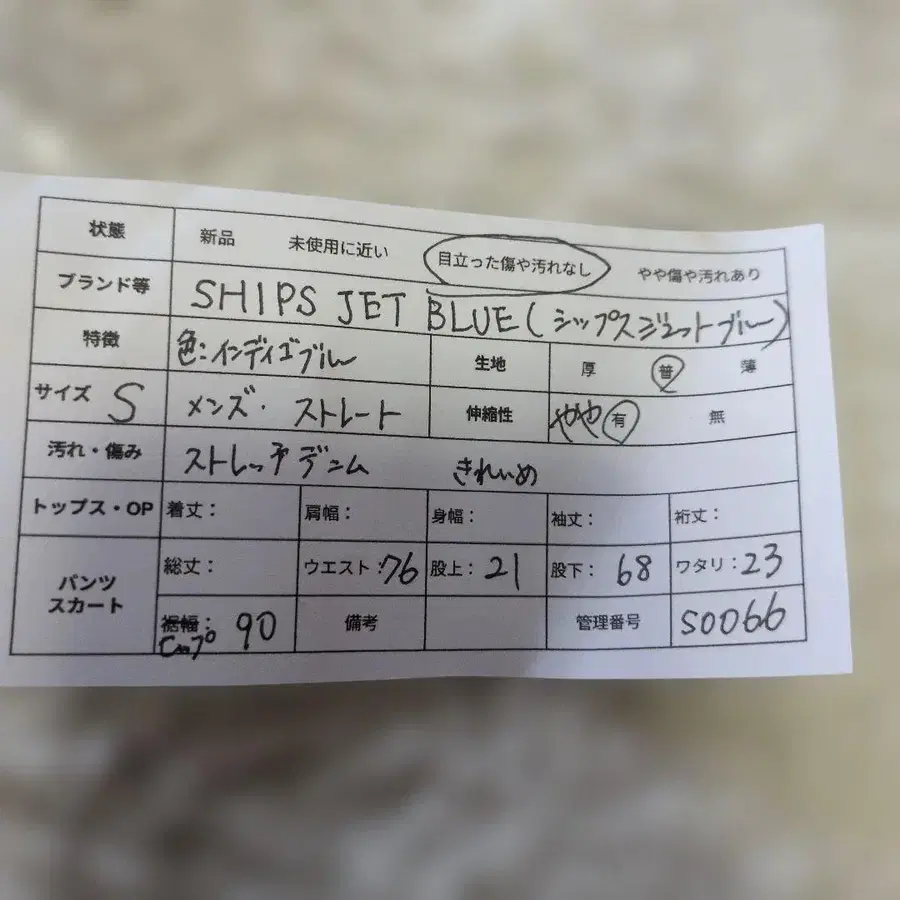 状態 新品 未使用に近い 目立った傷や汚れなし やや傷や汚れあり
ブランド等 SHIPS JET BLUE(シップスジェットブルー)
特徴 色:インディゴブルー 生地 厚 普 薄
サイズ S メンズ・ストレート 伸縮性 やや 有 無
汚れ・傷み ストレッチデニム きれいめ
トップス・OP 着丈: 肩幅: 身幅: 袖丈: 裄丈:
パンツ スカート 総丈: ウエスト:76 股上:21 股下:68 ワタリ:23
裾幅: ヒップ 90 備考 管理番号 S0066